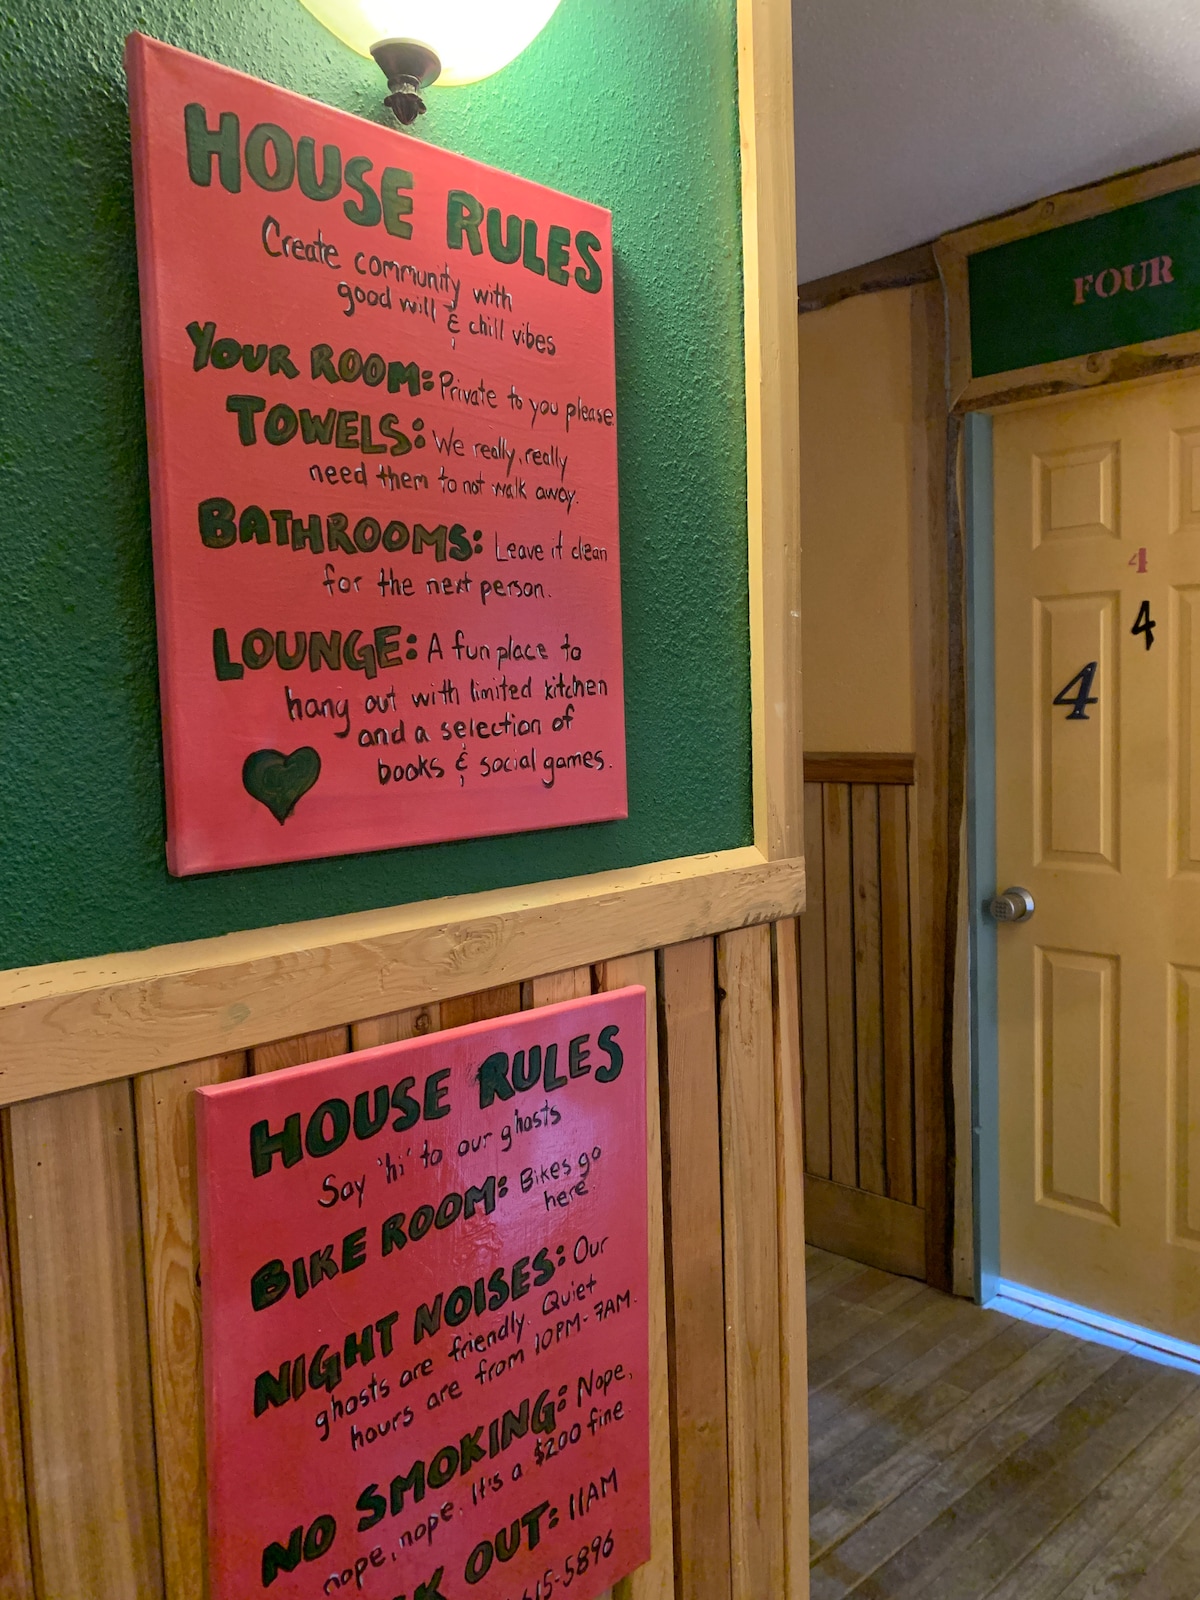 HOUSE RULES
Create community with
good will & chill vibes
YOUR ROOM: Private to you please.
TOWELS: We really, really
need them to not walk away.
BATHROOMS: Leave it clean
for the next person.
LOUNGE: A fun place to
hang out with limited kitchen
and a selection of
books & social games.
HOUSE RULES
Say 'hi' to our ghosts
BIKE ROOM: Bikes go
here.
NIGHT NOISES: Our
ghosts are friendly. Quiet
hours are from 10PM-7AM.
NO SMOKING: Nope,
nope, nope. It's a $200 fine.
OUT: 11AM
615-5896
FOUR
4
4
4